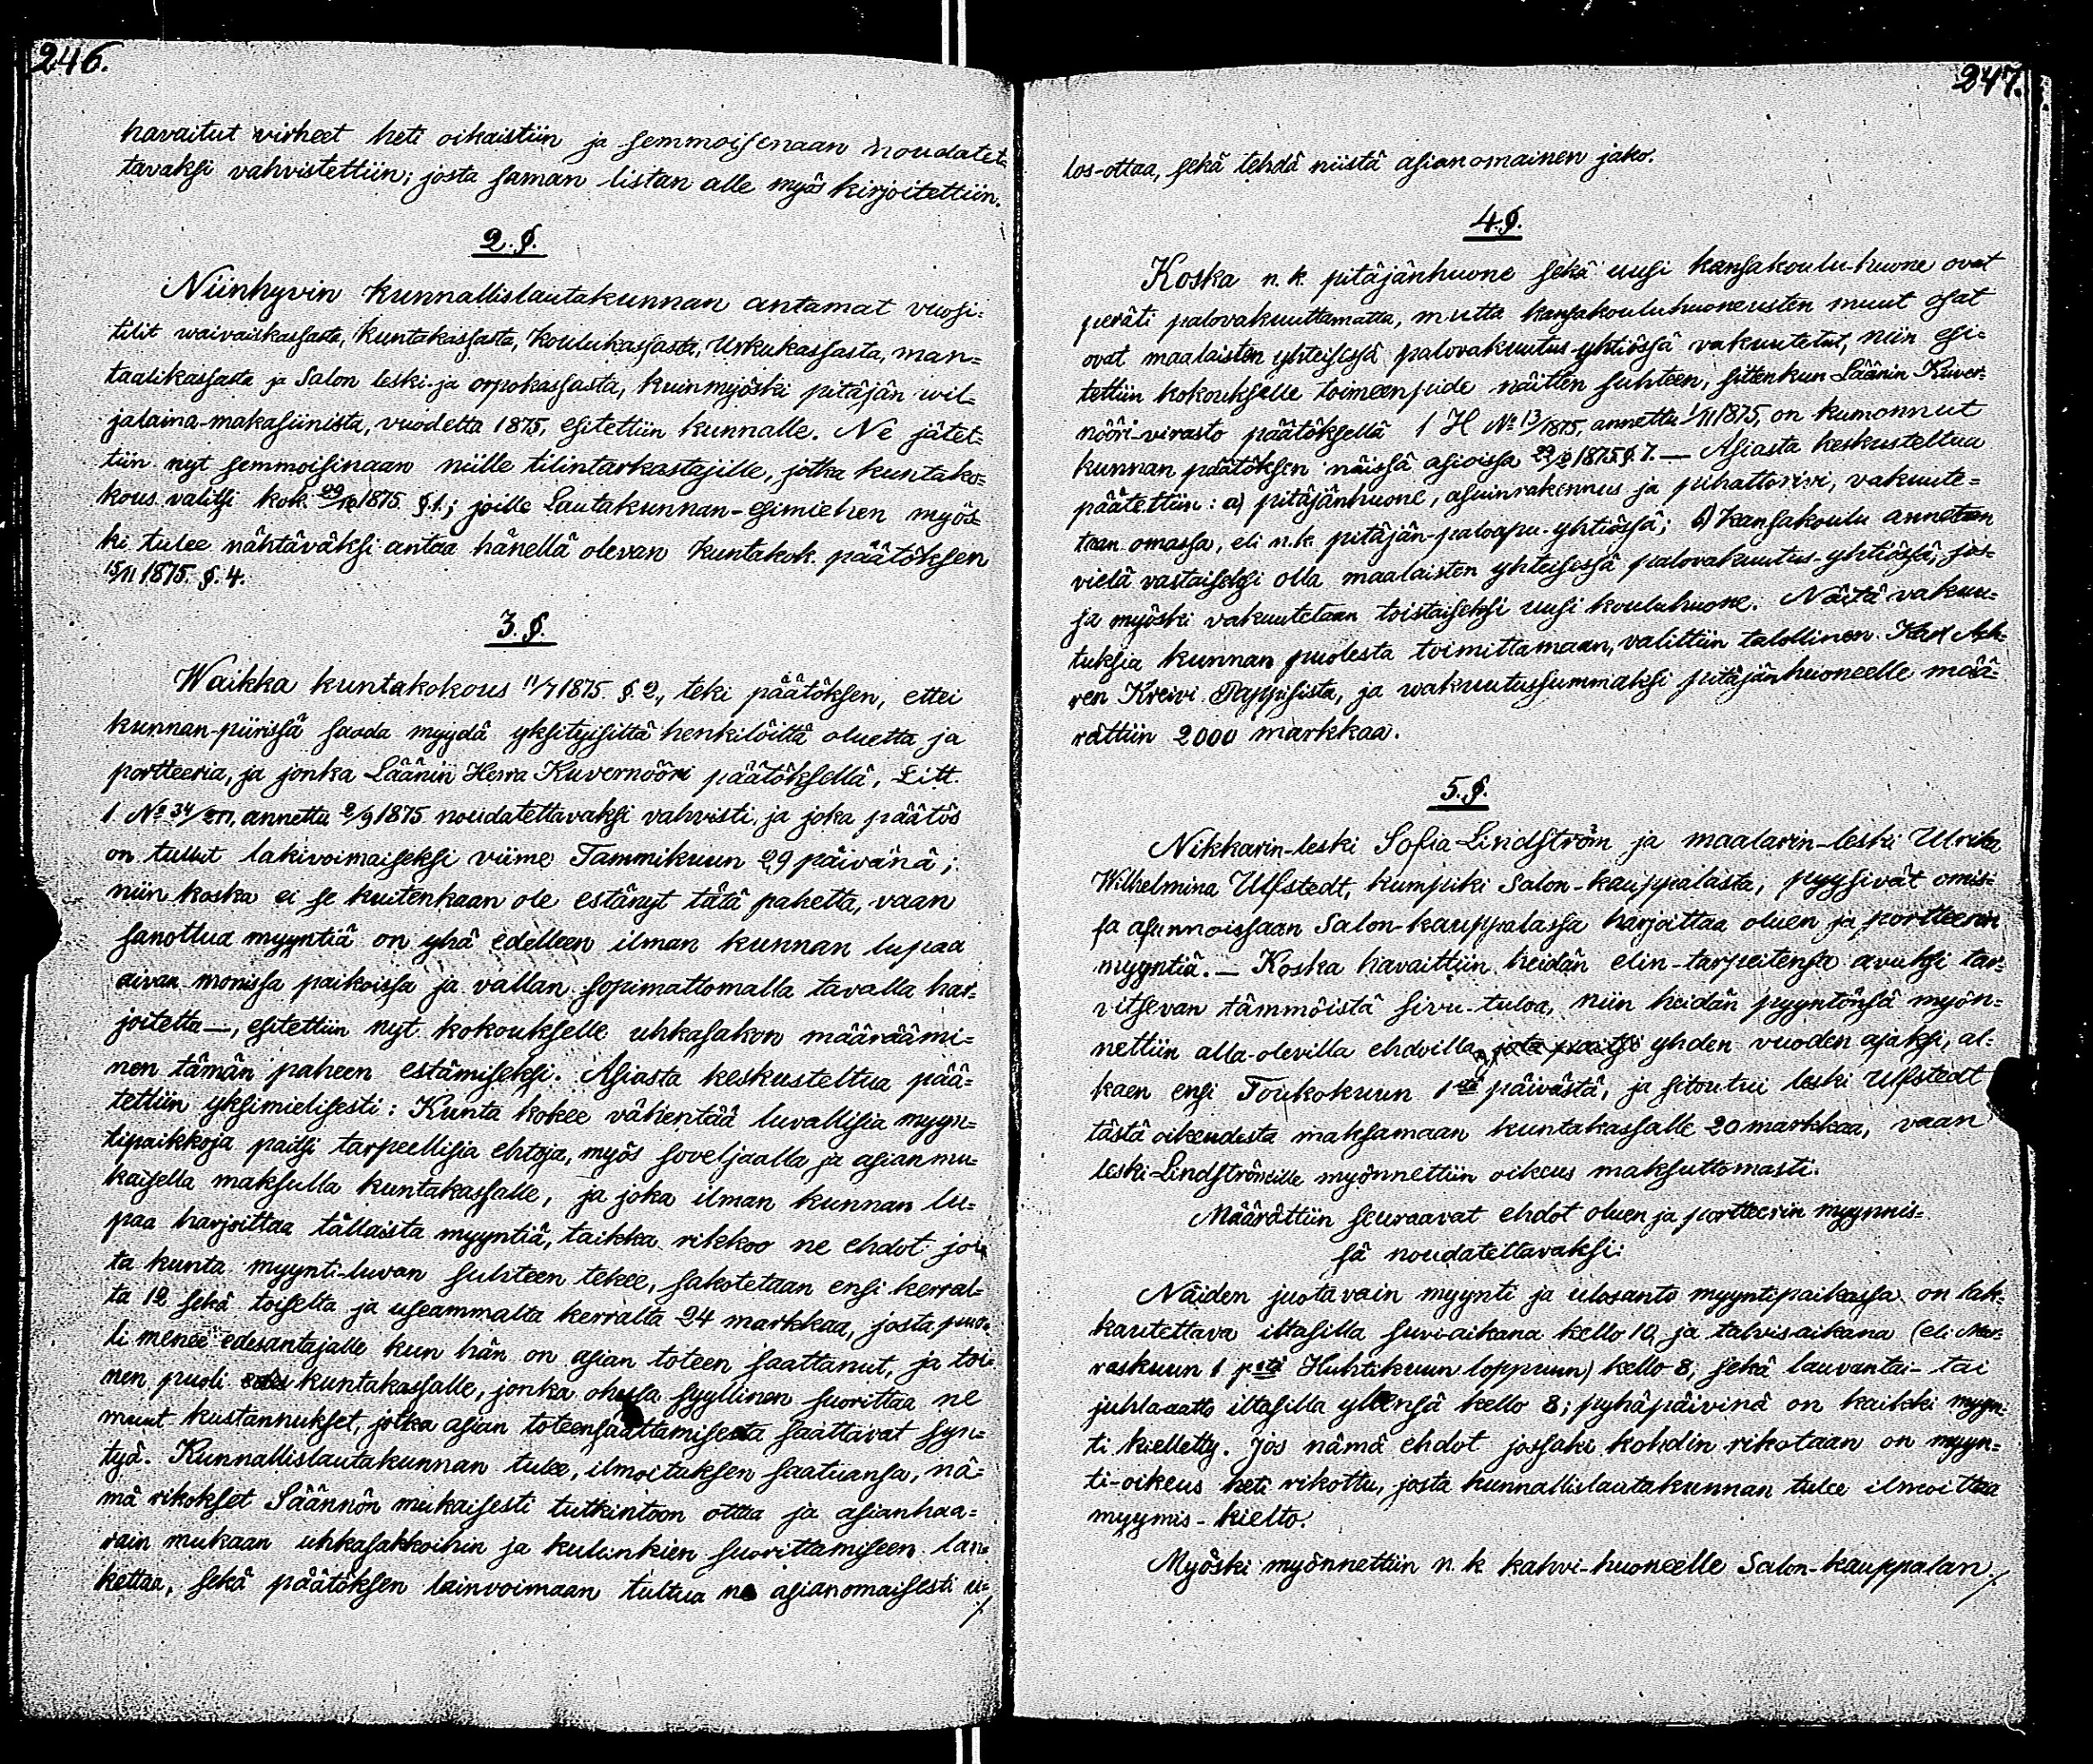 246.
havaitut virheet heti oikaistiin ja semmoisenaan noudatet-
tavaksi vahvistettiin; josta saman listan alle myös kirjoitettiin.
2. §.
Niinhyvin kunnallislautakunnan antamat vuosi-
tilit waivaiskassasta, kuntakassasta, koulukassasta, urkukassasta, man-
taalikassasta ja Salon leski- ja orpokassasta, kuin myöski pitäjän wil-
jalaina-makasiinista, vuodelta 1875, esitettiin kunnalle. Ne jätet-
tiin nyt semmoisinaan niille tilintarkastajille, jotka kuntako-
kous valitsi kok. 1875 §.1.; joille Lautakunnan-esimiehen myös-
ki tulee nähtäväksi antaa hänellä olevan kuntakok. päätöksen
15/11 1875. §. 4.
3. §.
Waikka kuntakokous 11/7 1875. § 2., teki päätöksen, ettei
kunnan-piirissä saada myydä yksityisiltä henkilöiltä oluetta ja
portteeria, ja jonka Läänin Herra Kuvernööri päätöksellä, Litt.
1 No 34/ annettu 2/9 1875 noudatettavaksi vahvisti, ja joka päätös
on tullut lakivoimaiseksi viime Tammikuun 29 päivänä;
niin koska ei se kuitenkaan ole estänyt tätä pahetta, vaan
sanottua myyntiä on yhä edelleen ilman kunnan lupaa
aivan monissa paikoissa ja vallan sopimattomalla tavalla har-
joitettu —, esitettiin nyt kokoukselle uhkasakon määräämi-
nen tämän paheen estämiseksi. Asiasta keskusteltua pää-
tettiin yksimielisesti: Kunta kokee vähentää luvallisia myyn-
tipaikkoja paitsi tarpeellisia ehtoja, myös soveljaalla ja asianmu-
kaisella maksulla kuntakassalle, ja joka ilman kunnan lu-
paa harjoittaa tällaista myyntiä, taikka rikkoo ne ehdot joi-
ta kunta myynti-luvan suhteen tekee, sakotetaan ensi kerral-
ta 12 sekä toiselta ja useammalta kerralta 24 markkaa, josta puo-
li menee edesantajalle kun hän on asian toteen saattanut, ja toi-
nen puoli kuntakassalle, jonka ohessa syyllinen suorittaa ne
muut kustannukset, jotka asian toteensaattamisesta saattavat syn-
tyä. Kunnallislautakunnan tulee, ilmoituksen saatuansa, nä-
mä rikokset Säännön mukaisesti tutkintoon ottaa ja asianhaa-
rain mukaan uhkasakkoihin ja kulunkien suorittamiseen lan-
kettaa, sekä päätöksen lainvoimaan tultua ne asianomaisesti u-
247.
los-ottaa, sekä tehdä niistä asianomainen jako.
4. §.
Koska n. k. pitäjänhuone sekä uusi kansakoulu-huone ovat
peräti palovakuuttamatta, mutta kansakouluhuoneusten muut osat
ovat maalaisten yhteisessä palovakuutus-yhtiössä vakuutetut, niin esi-
tettiin kokoukselle toimeenpide näitten suhteen, sittenkun Läänin Kuver-
nööri-virasto päätöksellä 1 H No 13/1875, annettu 1/11 1875, on kumonnut
kunnan päätöksen näissä asioissa 1875 §. 7. — Asiasta keskusteltua
päätettiin: a) pitäjänhuone, asuinrakennus ja pihattorivi, vakuute-
taan omassa, eli n. k. pitäjän-paloapu-yhtiössä; b) Kansakoulu annetaan
vielä vastaiseksi olla maalaisten yhteisessä palovakuutus-yhtiössä, jos-
sa myöski vakuutetaan toistaiseksi uusi kouluhuone. Näitä vakuu-
tuksia kunnan puolesta toimittamaan, valittiin talollinen Karl Ah-
ren Kreivi Pappisista, ja wakuutussummaksi pitäjänhuoneelle mää-
rättiin 2000 markkaa.
5. §.
Nikkarin-leski Sofia Lindström ja maalarin-leski Ulrika
Wilhelmina Ulfstedt, kumpiki Salon-kauppalasta, pyysivät omis-
sa asunnoissaan Salon-kauppalassa harjoittaa oluen ja portteerin
myyntiä. — Koska havaittiin heidän elin-tarpeitensa avuksi tar-
vitsevan tämmöistä sivu-tuloa, niin heidän pyyntönsä myön-
nettiin alla-olevilla ehdoilla, yhden vuoden ajaksi, al-
kaen ensi Toukokuun 1stä päivästä, ja sitoutui leski Ulfstedt
tästä oikeudesta maksamaan kuntakassalle 20 markkaa, vaan
leski Lindströmille myönnettiin oikeus maksuttomasti.
Määrättiin seuraavat ehdot oluen ja portteerin myynnis-
sä noudatettavaksi:
Näiden juotavain myynti ja ulosanto myyntipaikassa on lak-
kautettava iltasilla suvi-aikana kello 10, ja talvis-aikana (eli Mar-
raskuun 1 pstä Huhtikuun loppuun) kello 8; sekä lauvantai- tai
juhlaaatto iltasilla yleensä kello 8; pyhäpäivinä on kaikki myyn-
ti kielletty. Jos nämä ehdot jossaki kohdin rikotaan on myyn-
ti-oikeus heti rikottu, josta kunnallislautakunnan tulee ilmoittaa
myymis-kielto.
Myöski myönnettiin n. k. kahvi-huoneelle Salon-kauppalan